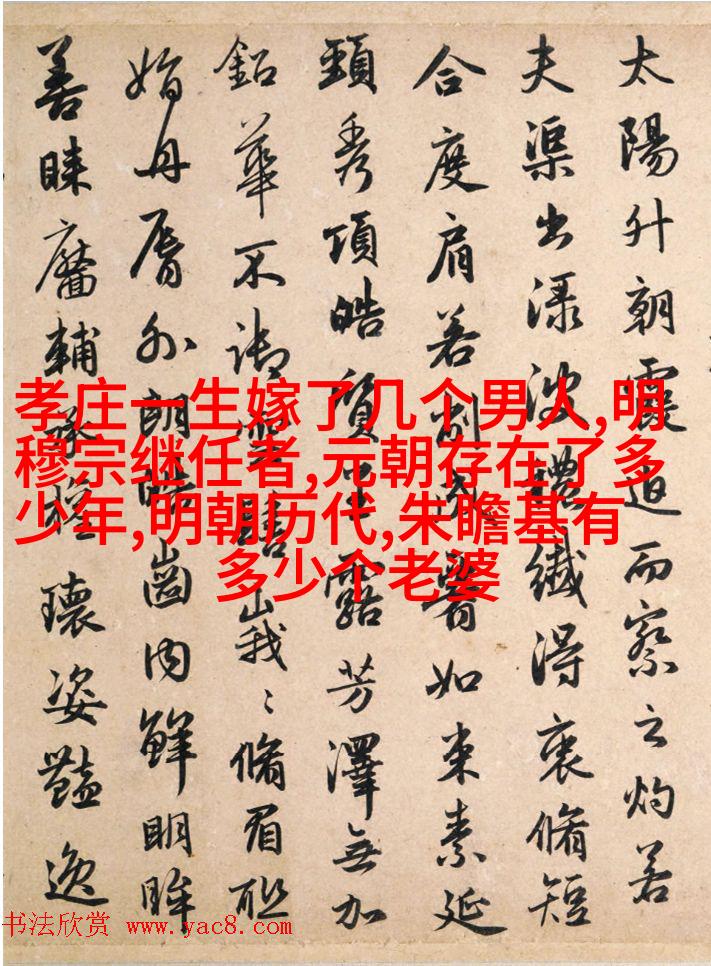 太陽升朝霞迫而察之灼若
夫渠出淥波襛纖得衷脩短
合度肩若削成如束素延
頸秀項皓質呈露芳澤無加
鉛華不御雲髻峩〻脩眉聯
娟丹脣外朗皓齒内鮮明眸
善睞靨輔承權瓌姿豔逸
孝庄一生嫁了几个男人,明
穆宗继任者,元朝存在了多
少年,明朝历代,朱瞻基有
多少个老婆
书法欣赏 www.yac8.com